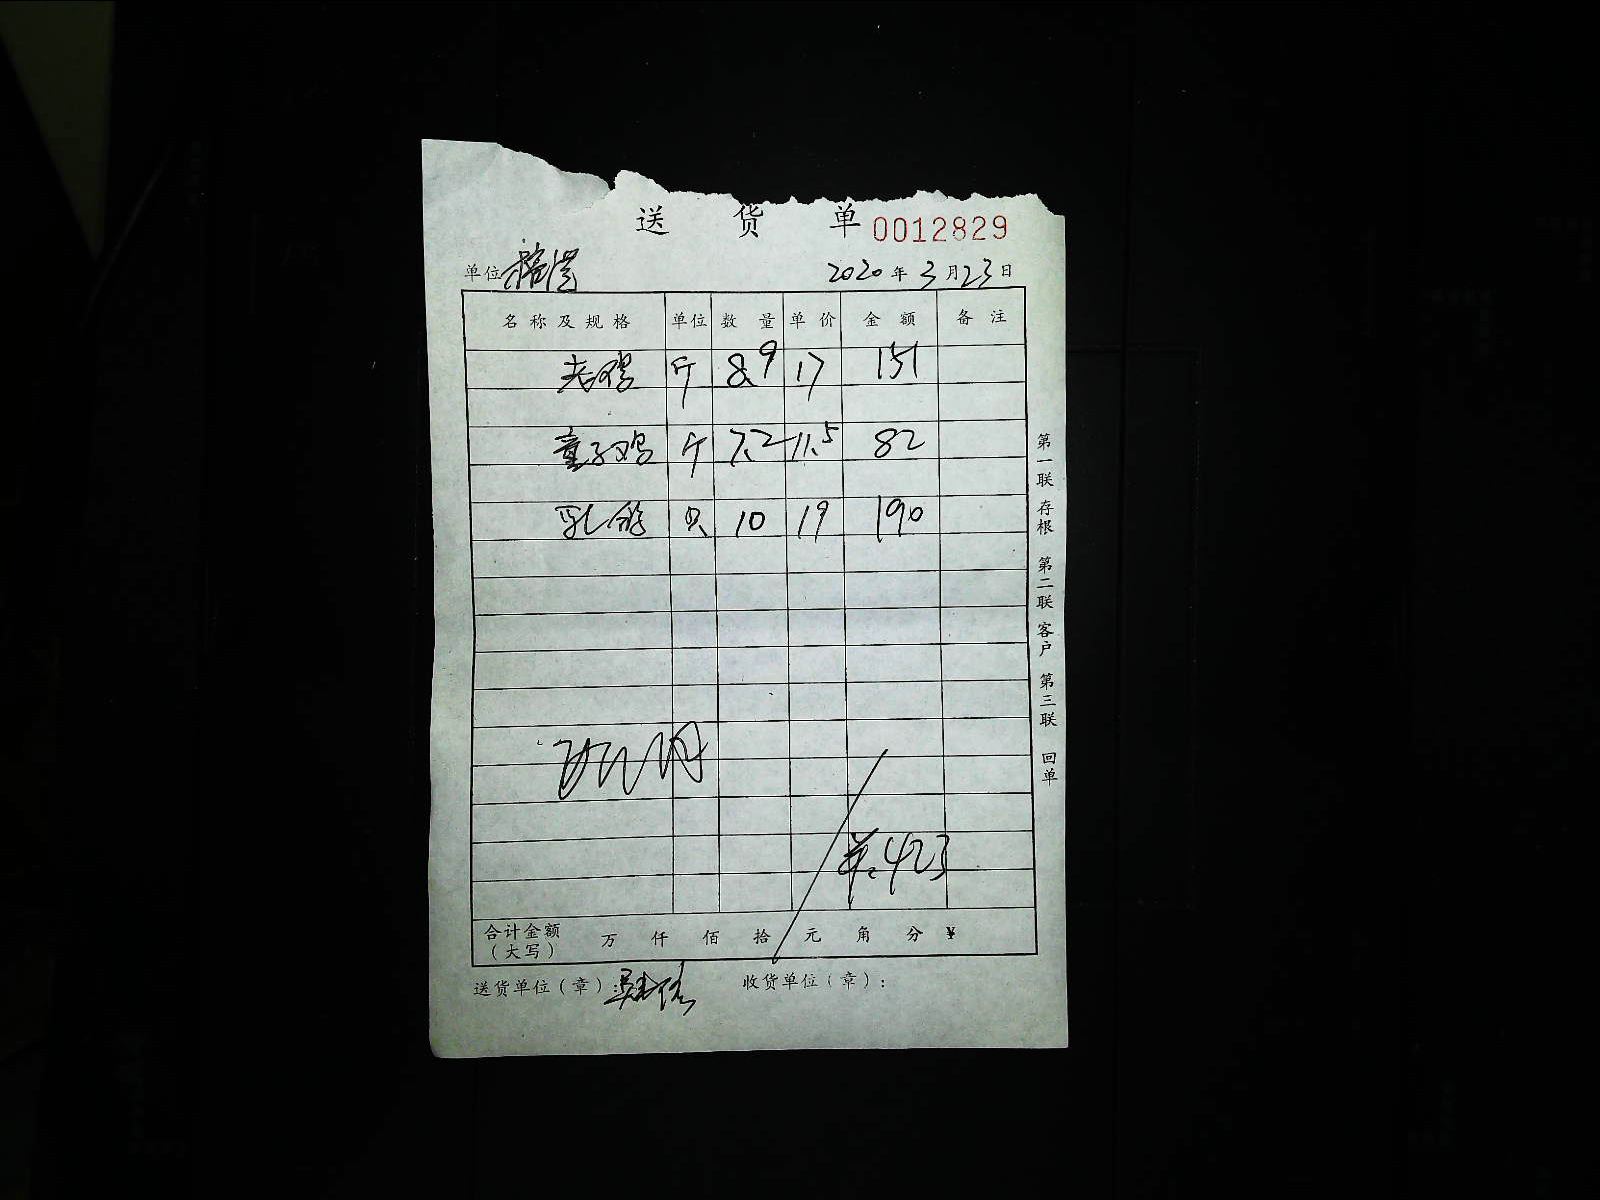 送 货 单 0012829
单位 2020年3月23日
名称及规格 单位 数量 单价 金额 备注
老鸡 斤 8.9 17 151
童子鸡 斤 7.2 11.5 82
乳鸽 只 10 19 190
423
合计金额 万 仟 佰 拾 元 角 分 ¥
(大写)
送货单位(章): 收货单位(章):
第一联 存根 第二联 客户 第三联 回单